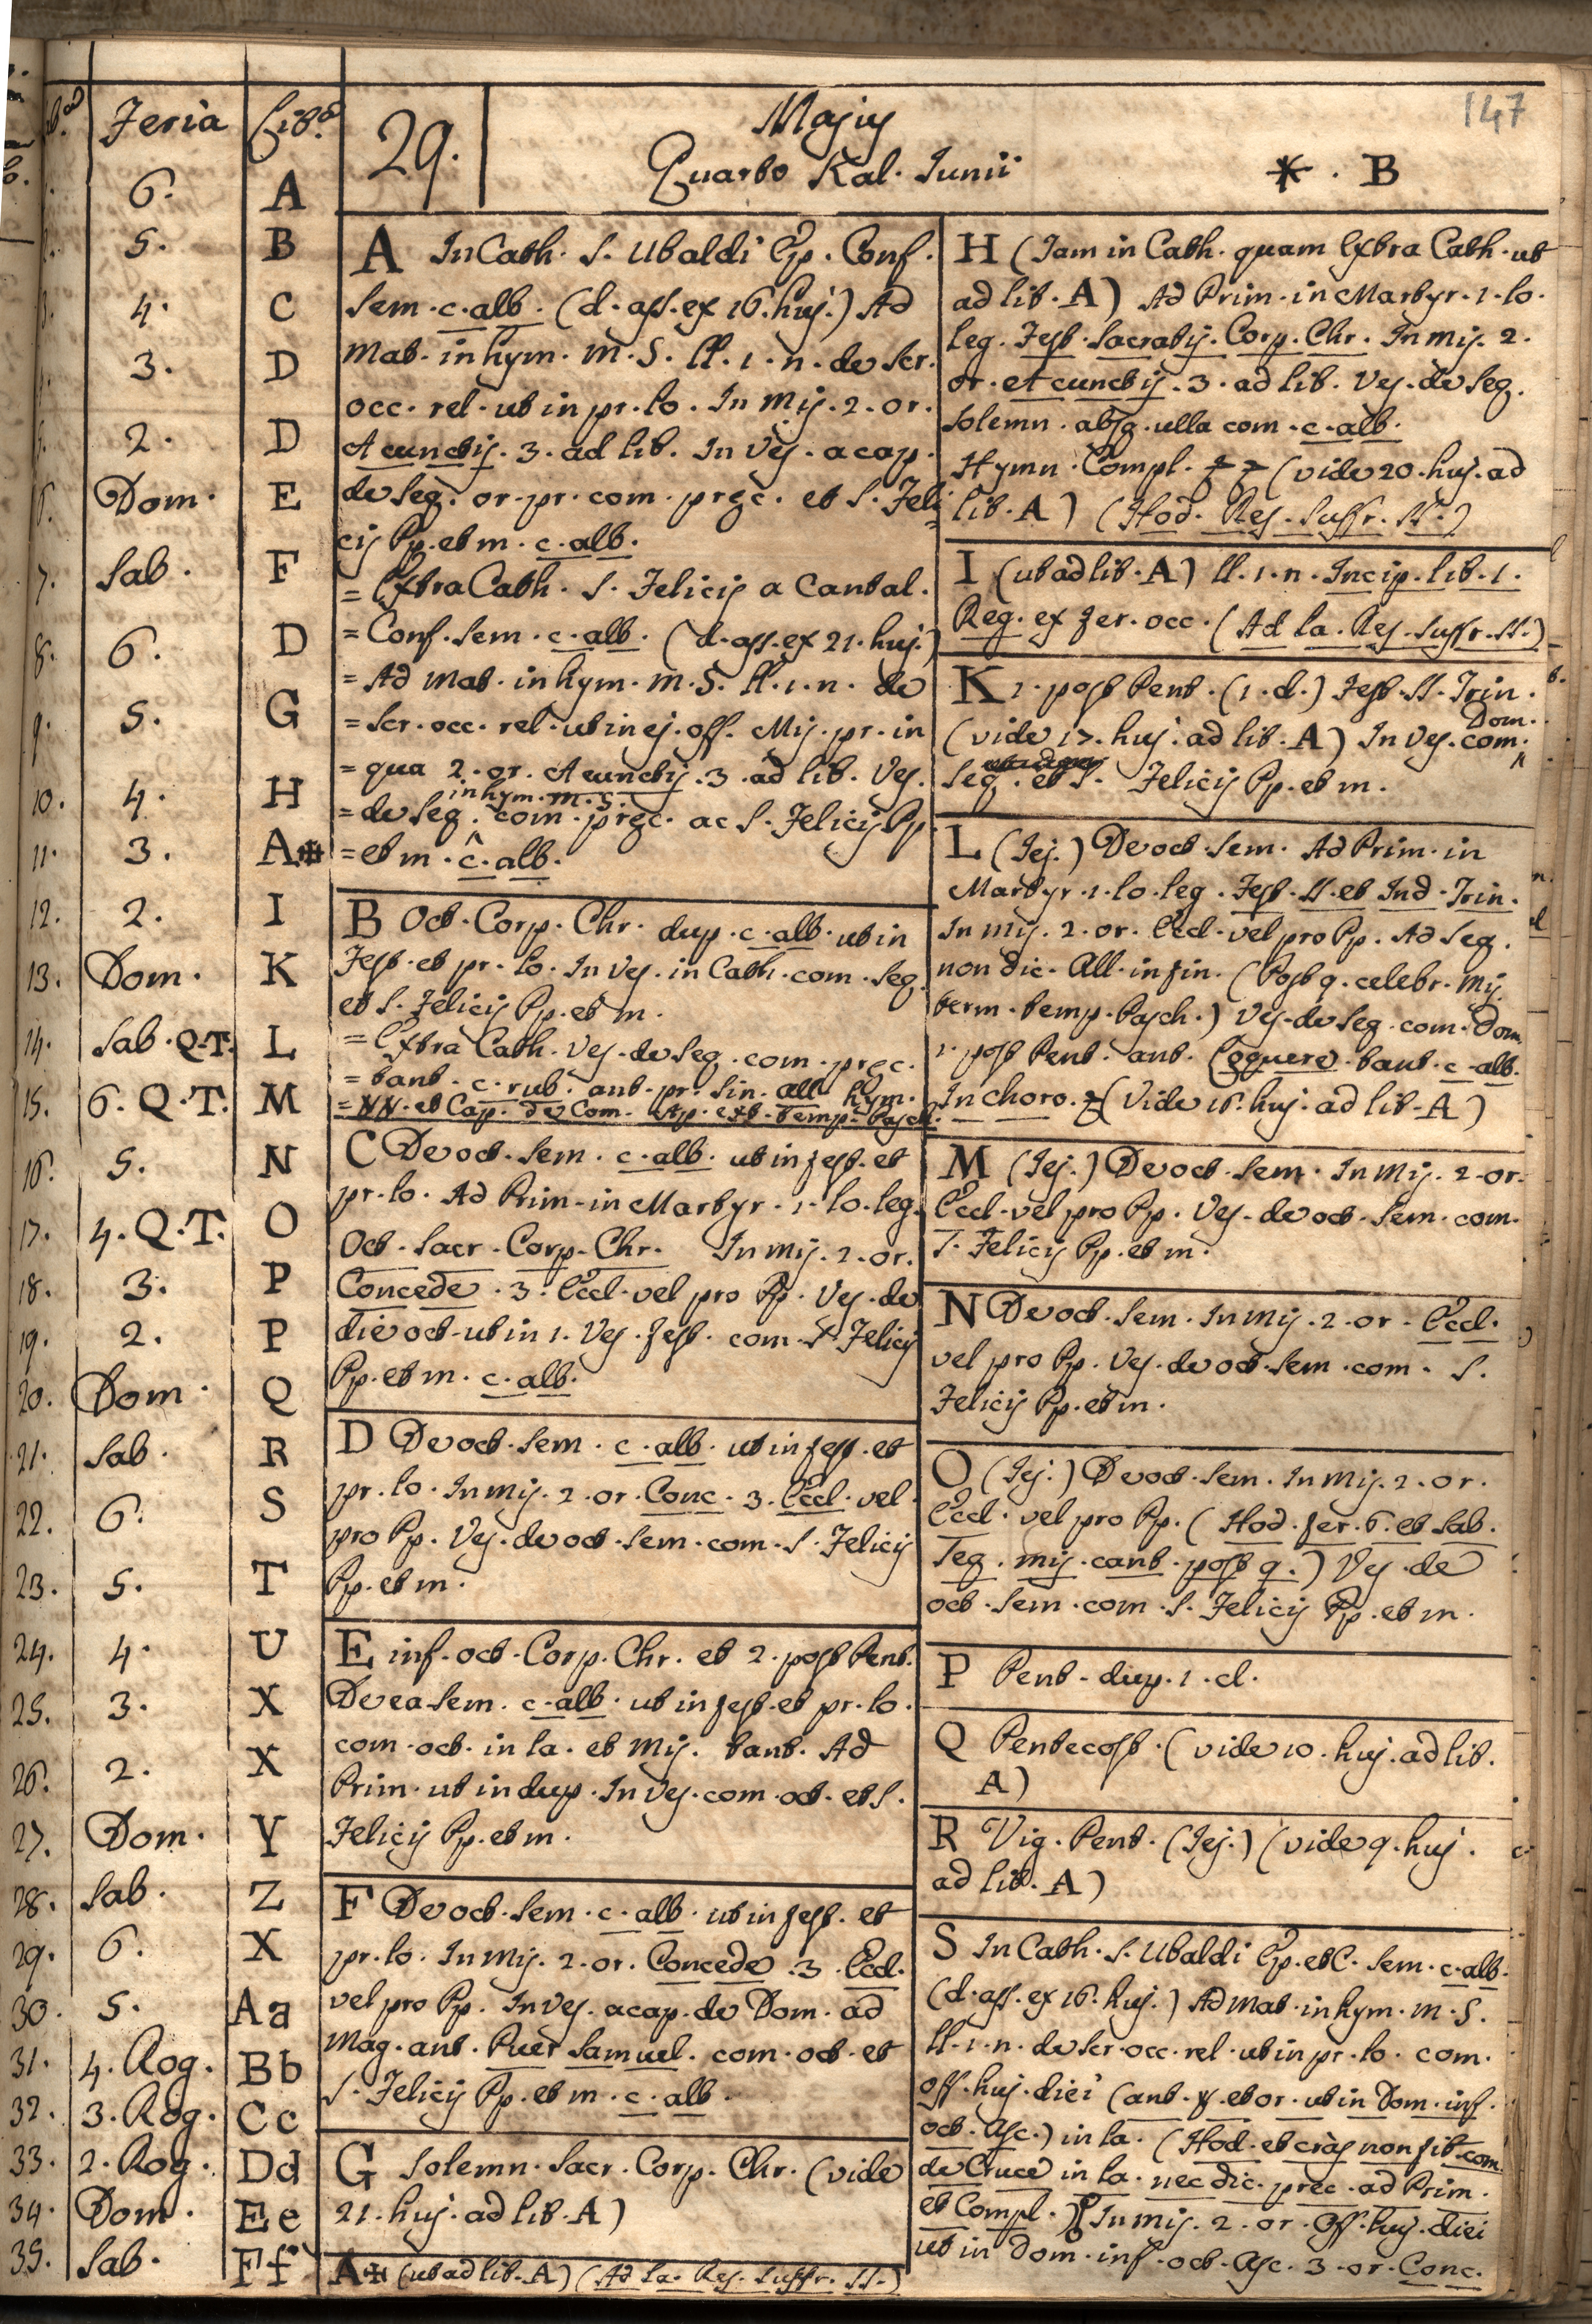 147
29.
Majus
Quarto Kal. Junii
* . B
Feria Litt.ª
6. A
2. 5. B
3. 4. C
3. D
5. 2. D
6. Dom. E
7. Sab. F
8. 6. D
9. 5. G
10. 4. H
11. 3. A*
12. 2. I
13. Dom. K
14. Sab. Q.T. L
15. 6. Q.T. M
16. 5. N
17. 4. Q.T. O
18. 3. P
19. 2. P
20. Dom. Q
21. Sab. R
22. 6. S
23. 5. T
24. 4. U
25. 3. X
26. 2. X
27. Dom. Y
28. Sab. Z
29. 6. X
30. 5. Aa
31. 4. Rog. Bb
32. 3. Rog. Cc
33. 2. Rog. Dd
34. Dom. Ee
35. Sab. Ff
A In Cath. S. Ubaldi Ep. Conf.
sem. c. alb. (d. ass. ex 16. huj.) Ad
Mat. in hym. M. S. ll. 1. n. de scr.
occ. rel. ut in pr. lo. In Mis. 2. or.
A cunctis. 3. ad lib. In Ves. a cap.
de seq. or. pr. com. prec. et S. Feli=
cis Pp. et m. c. alb.
= Extra Cath. S. Felicis a Cantal.
= Conf. sem. c. alb. (d. ass. ex 21. huj.)
= Ad Mat. in hym. M. S. ll. 1. n. de
= scr. occ. rel. ut in ej. off. Mis. pr. in
= qua 2. or. A cunctis. 3. ad lib. Ves.
in hym. M. S.
= de seq. com. prec. ac S. Felicis Pp.
= et m. c. alb.
B Oct. Corp. Chr. dup. c. alb. ut in
Fest. et pr. lo. In Ves. in Cath. com. seq.
et S. Felicis Pp. et m.
= Extra Cath. Ves. de seq. com. prec.
= tant. c. rub. ant. pr. sin. all. hym.
= NN. et Cap. de Com. Ap. ext. Temp. Pasch.
C De oct. sem. c. alb. ut in fest. et
pr. lo. Ad Prim. in Martyr. 1. lo. leg.
Oct. Sacr. Corp. Chr. In Mis. 2. or.
Concede. 3. Eccl. vel pro Pp. Ves. de
die oct. ut in 1. Ves. fest. com. S. Felicis
Pp. et m. c. alb.
D De oct. sem. c. alb. ut in fest. et
pr. lo. In Mis. 2. or. Conc. 3. Eccl. vel
pro Pp. Ves. de oct. sem. com. S. Felicis
Pp. et m.
E inf. oct. Corp. Chr. et 2. post Pent.
De ea sem. c. alb. ut in fest. et pr. lo.
com. oct. in la. et Mis. tant. Ad
Prim. ut in dup. In Ves. com. oct. et S.
Felicis Pp. et m.
F De oct. sem. c. alb. ut in fest. et
pr. lo. In Mis. 2. or. Concede. 3. Eccl.
vel pro Pp. In Ves. a cap. de Dom. ad
Mag. ant. Puer Samuel. com. oct. et
S. Felicis Pp. et m. c. alb.
G Solemn. Sacr. Corp. Chr. (vide
21. huj. ad lit. A)
A* (ut ad lit. A) (Ad La. Res. Suffr. SS.)
H (Tam in Cath. quam Extra Cath. ut
ad lit. A) Ad Prim. in Martyr. 1. lo.
leg. Fest. Sacratis. Corp. Chr. In Mis. 2.
or. A cunctis. 3. ad lib. Ves. de seq.
solemn. absq. ulla com. c. alb.
Hymn. Compl. (vide 20. huj. ad
lit. A) (Hod. Res. Suffr. SS.)
I (ut ad lit. A) ll. 1. n. Incip. lib. 1.
Reg. ex fer. occ. (Ad La. Res. Suffr. SS.)
K 1. post Pent. (1. d.) Fest. SS. Trin.
(vide 17. huj. ad lit. A) In Ves. com. Dom.
seq. et S. Felicis Pp. et m.
L (Jej.) De oct. sem. Ad Prim. in
Martyr. 1. lo. leg. Fest. SS. et Ind. Trin.
In Mis. 2. or. Eccl. vel pro Pp. Ad Seq.
non dic. All. in fin. (Post q. celebr. Mis.
term. temp. Pasch.) Ves. de seq. com. Dom.
1. post Pent. ant. Loquere. tant. c. alb.
In choro. (Vide 16. huj. ad lit. A)
M (Jej.) De oct. sem. In Mis. 2. or.
Eccl. vel pro Pp. Ves. de oct. sem. com.
S. Felicis Pp. et m.
N De oct. sem. In Mis. 2. or. Eccl.
vel pro Pp. Ves. de oct. sem. com. S.
Felicis Pp. et m.
O (Jej.) De oct. sem. In Mis. 2. or.
Eccl. vel pro Pp. (Hod. fer. 6. et Sab.
Seq. mis. cant. post q.) Ves. de
oct. sem. com. S. Felicis Pp. et m.
P Pent. dup. 1. cl.
Q Pentecost. (vide 10. huj. ad lit.
A)
R Vig. Pent. (Jej.) (vide 9. huj.
ad lit. A)
S In Cath. S. Ubaldi Ep. et C. sem. c. alb.
(d. ass. ex 16. huj.) Ad Mat. in hym. M. S.
ll. 1. n. de scr. occ. rel. ut in pr. lo. com.
off. huj. diei (ant. ℣. et or. ut in Dom. inf.
oct. Asc.) in la. (Hod. et cras non fit com.
de Cruce in la. nec dic. prec. ad Prim.
et Compl.) In Mis. 2. or. Off. huj. diei
ut in Dom. inf. oct. Asc. 3. or. Conc.